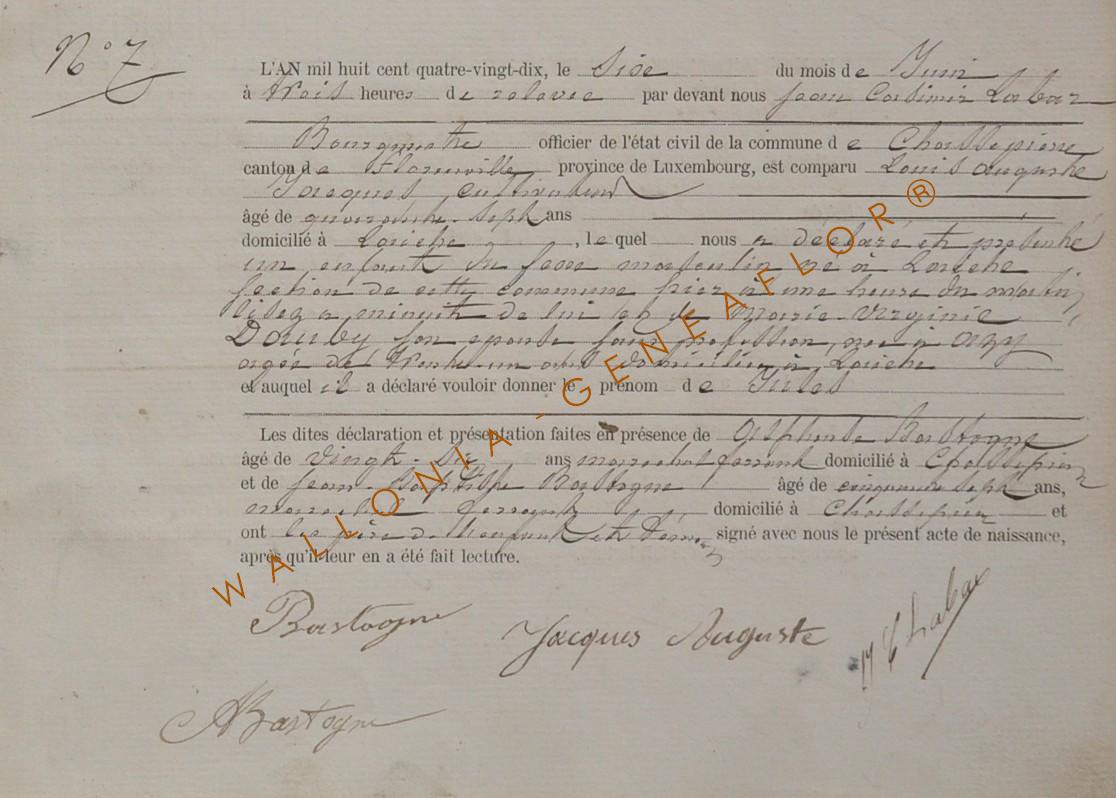 N° 7
L'AN mil huit cent quatre-vingt-dix, le Sixe du mois de Juin
à trois heures de relevée par devant nous Jean Casimir Labar
Bourgmestre officier de l'état civil de la commune de Chassepierre
canton de Florenville province de Luxembourg, est comparu Louis Auguste
Jacques, cultivateur
âgé de quarante-sept ans
domicilié à Laiche, lequel nous a déclaré et présenté
un enfant du sexe masculin né à Laiche
section de cette commune hier à une heure du matin,
de lui et de Marie-Virginie
son épouse sans profession, née à
agée de trente-un ans domiciliée à Laiche
et auquel il a déclaré vouloir donner le prénom de Jules
Les dites déclaration et présentation faites en présence de Alphonse Bastogne
âgé de vingt-six ans marechal ferrant domicilié à Chassepierre
et de Jean-Baptiste Bastogne âgé de cinquante sept ans,
marechal ferrant domicilié à Chassepierre et
ont les père de l'enfant et témoins signé avec nous le présent acte de naissance,
après qu'il leur en a été fait lecture.
Bastogne Jacques Auguste Labar
ABastogne
WALLONIA-GENEAFLOR®